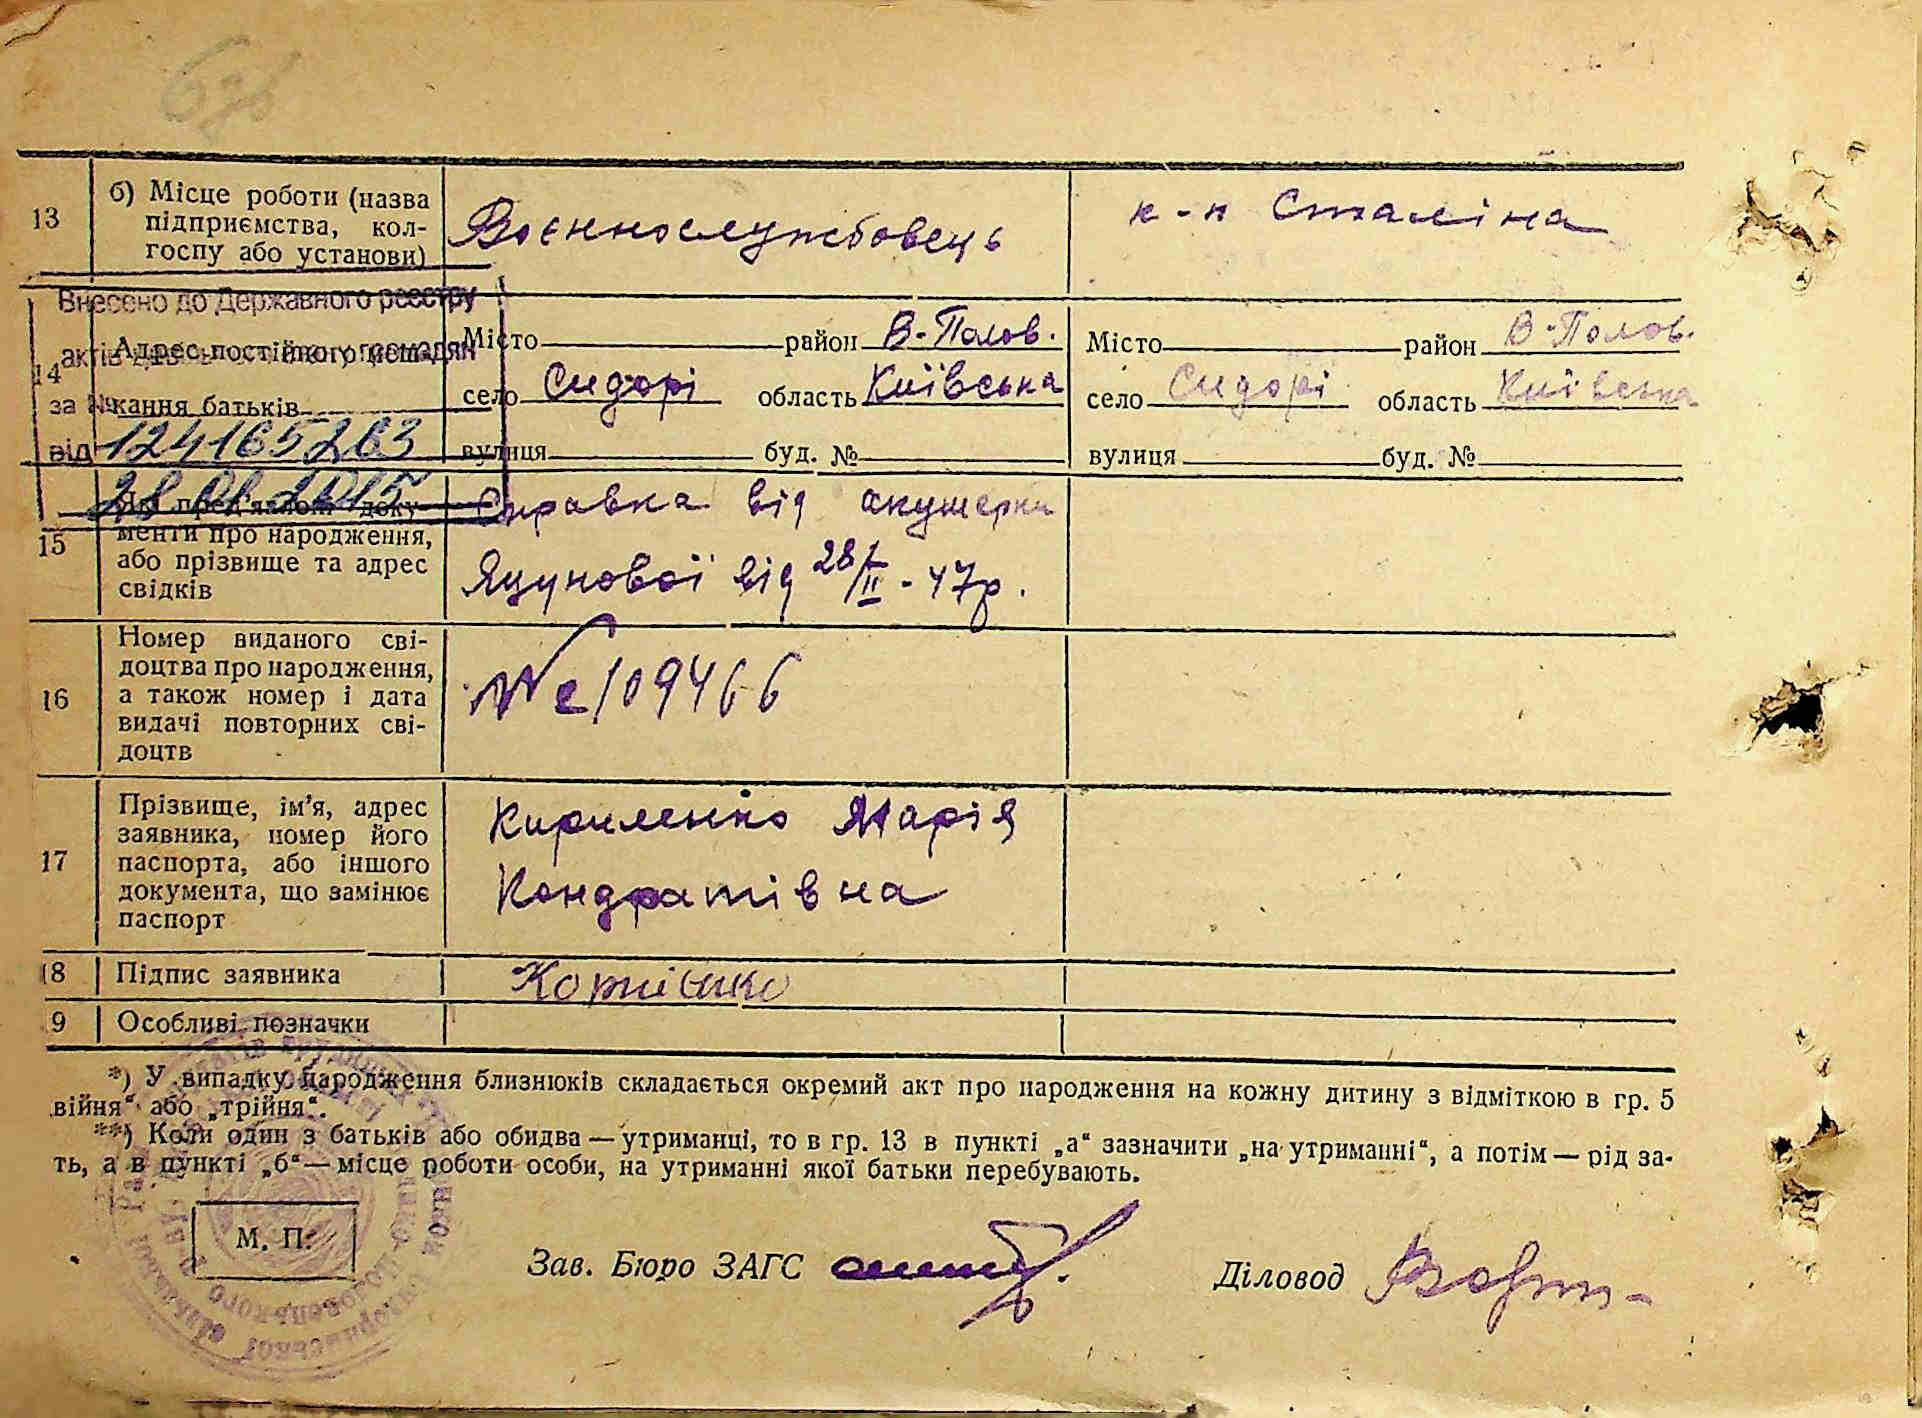 13
б) Місце роботи (назва
підприємства, кол-
госпу або установи)
Воєннослужбовець
к-п Сталіна
Внесено до Державного реєстру
актів громадян
за №
від 124165263
28 01 2015
14
Адрес постійного меш-
кання батьків
Місто район В-Полов.
село Сидорі область Київська
вулиця буд. №
Місто район В-Полов.
село Сидорі область Київська
вулиця буд. №
15
доку-
менти про народження,
або прізвище та адрес
свідків
Справка від акушерки
Яцунової від 28/II-47р.
16
Номер виданого сві-
доцтва про народження,
а також номер і дата
видачі повторних сві-
доцтв
№ 109466
17
Прізвище, ім'я, адрес
заявника, номер його
паспорта, або іншого
документа, що замінює
паспорт
Кириленко Марія
Кондратівна
18
Підпис заявника
9
Особливі позначки
*) У випадку народження близнюків складається окремий акт про народження на кожну дитину з відміткою в гр. 5
війня“ або „трійня“.
**) Коли один з батьків або обидва — утриманці, то в гр. 13 в пункті „а“ зазначити „на утриманні“, а потім — рід за-
ть, а в пункті „б“ — місце роботи особи, на утриманні якої батьки перебувають.
М. П.
Зав. Бюро ЗАГС
Діловод